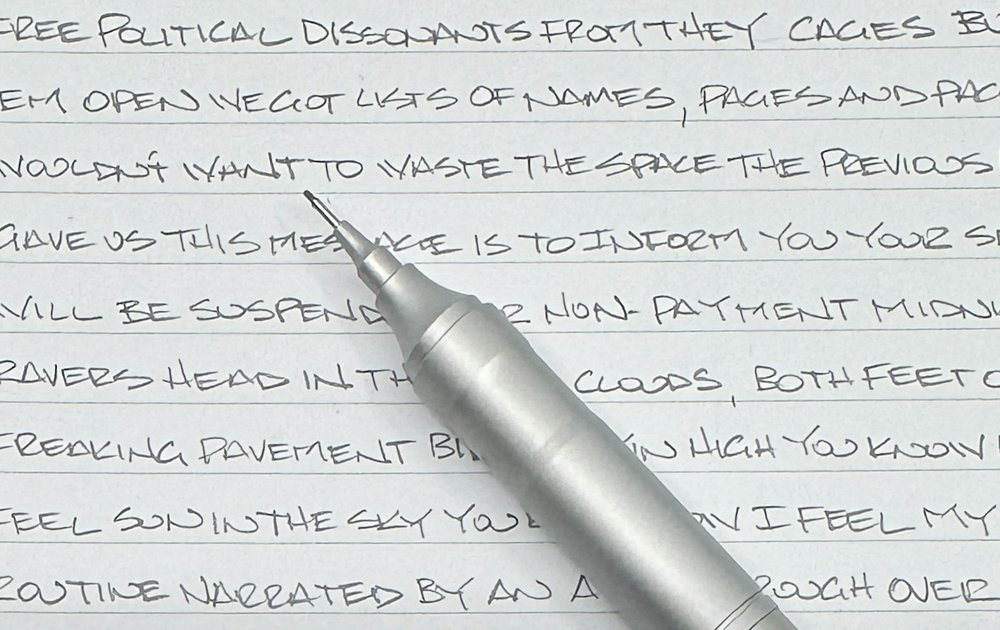 FREE POLITICAL DISSONANTS FROM THEY CAGES BU
EM OPEN WE GOT LISTS OF NAMES, PAGES AND PAG
WOULDN'T WANT TO WASTE THE SPACE THE PREVIOUS
GAVE US THIS MES AGE IS TO INFORM YOU YOUR SE
WILL BE SUSPEND R NON-PAYMENT MIDNI
RAVERS HEAD IN TH CLOUDS, BOTH FEET O
FREAKING PAVEMENT BI IN HIGH YOU KNOW
FEEL SUN IN THE SKY YOU K OW I FEEL MY
ROUTINE NARRATED BY AN A ROUGH OVER